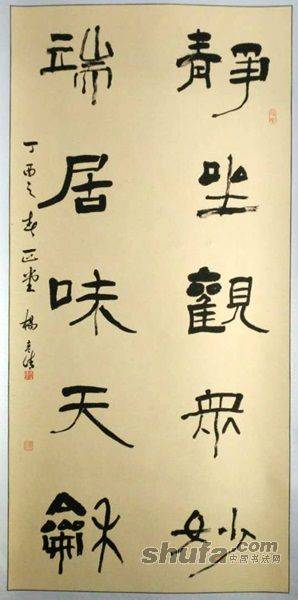 靜坐觀衆妙
端居味天龢
丁酉之春正堂楊
shufa.com
中国书法网